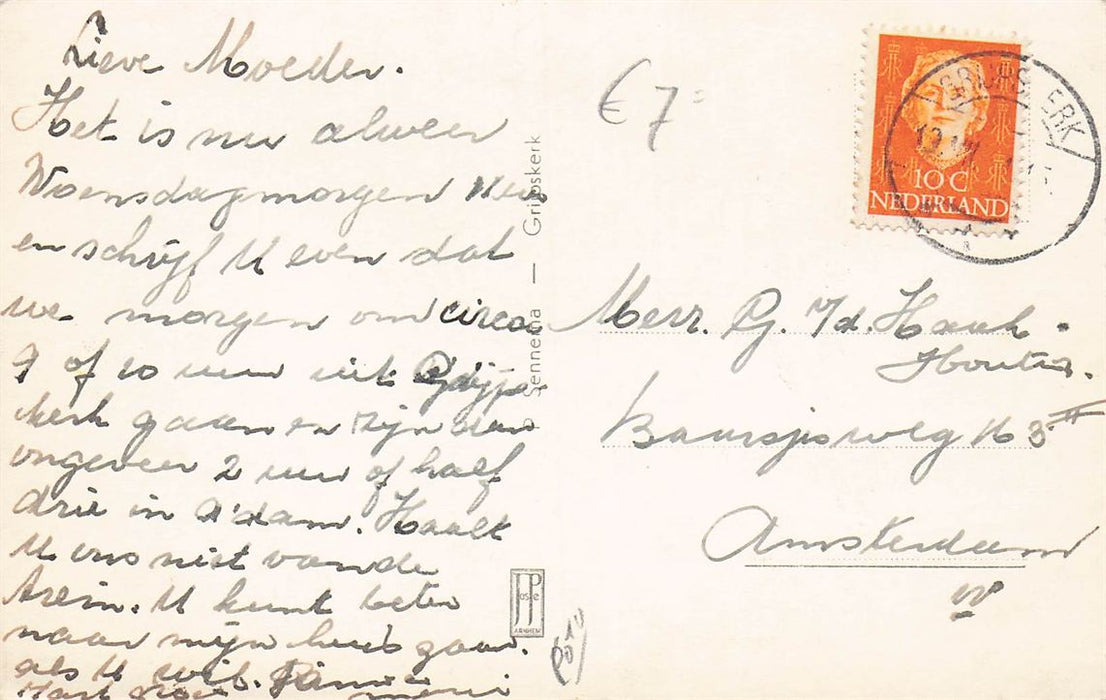 Lieve Moeder.
Het is nu alweer
Woensdagmorgen
en schrijf U even dat
we morgen om circa
9 of 10 uur uit Grijps
kerk gaan en zijn dan
ongeveer 2 uur of half
drie in A'dam. Haalt
U ons niet van de
trein. U kunt beter
naar mijn huis gaan.
als U wil.
Sennema — Grijpskerk
JosPe
ARNHEM
€ 7
10 C
NEDERLAND
GRIJPSKERK
Mevr. G. v/d. Hauk.
Houtus.
Baarsjesweg 163 II
Amsterdam
W